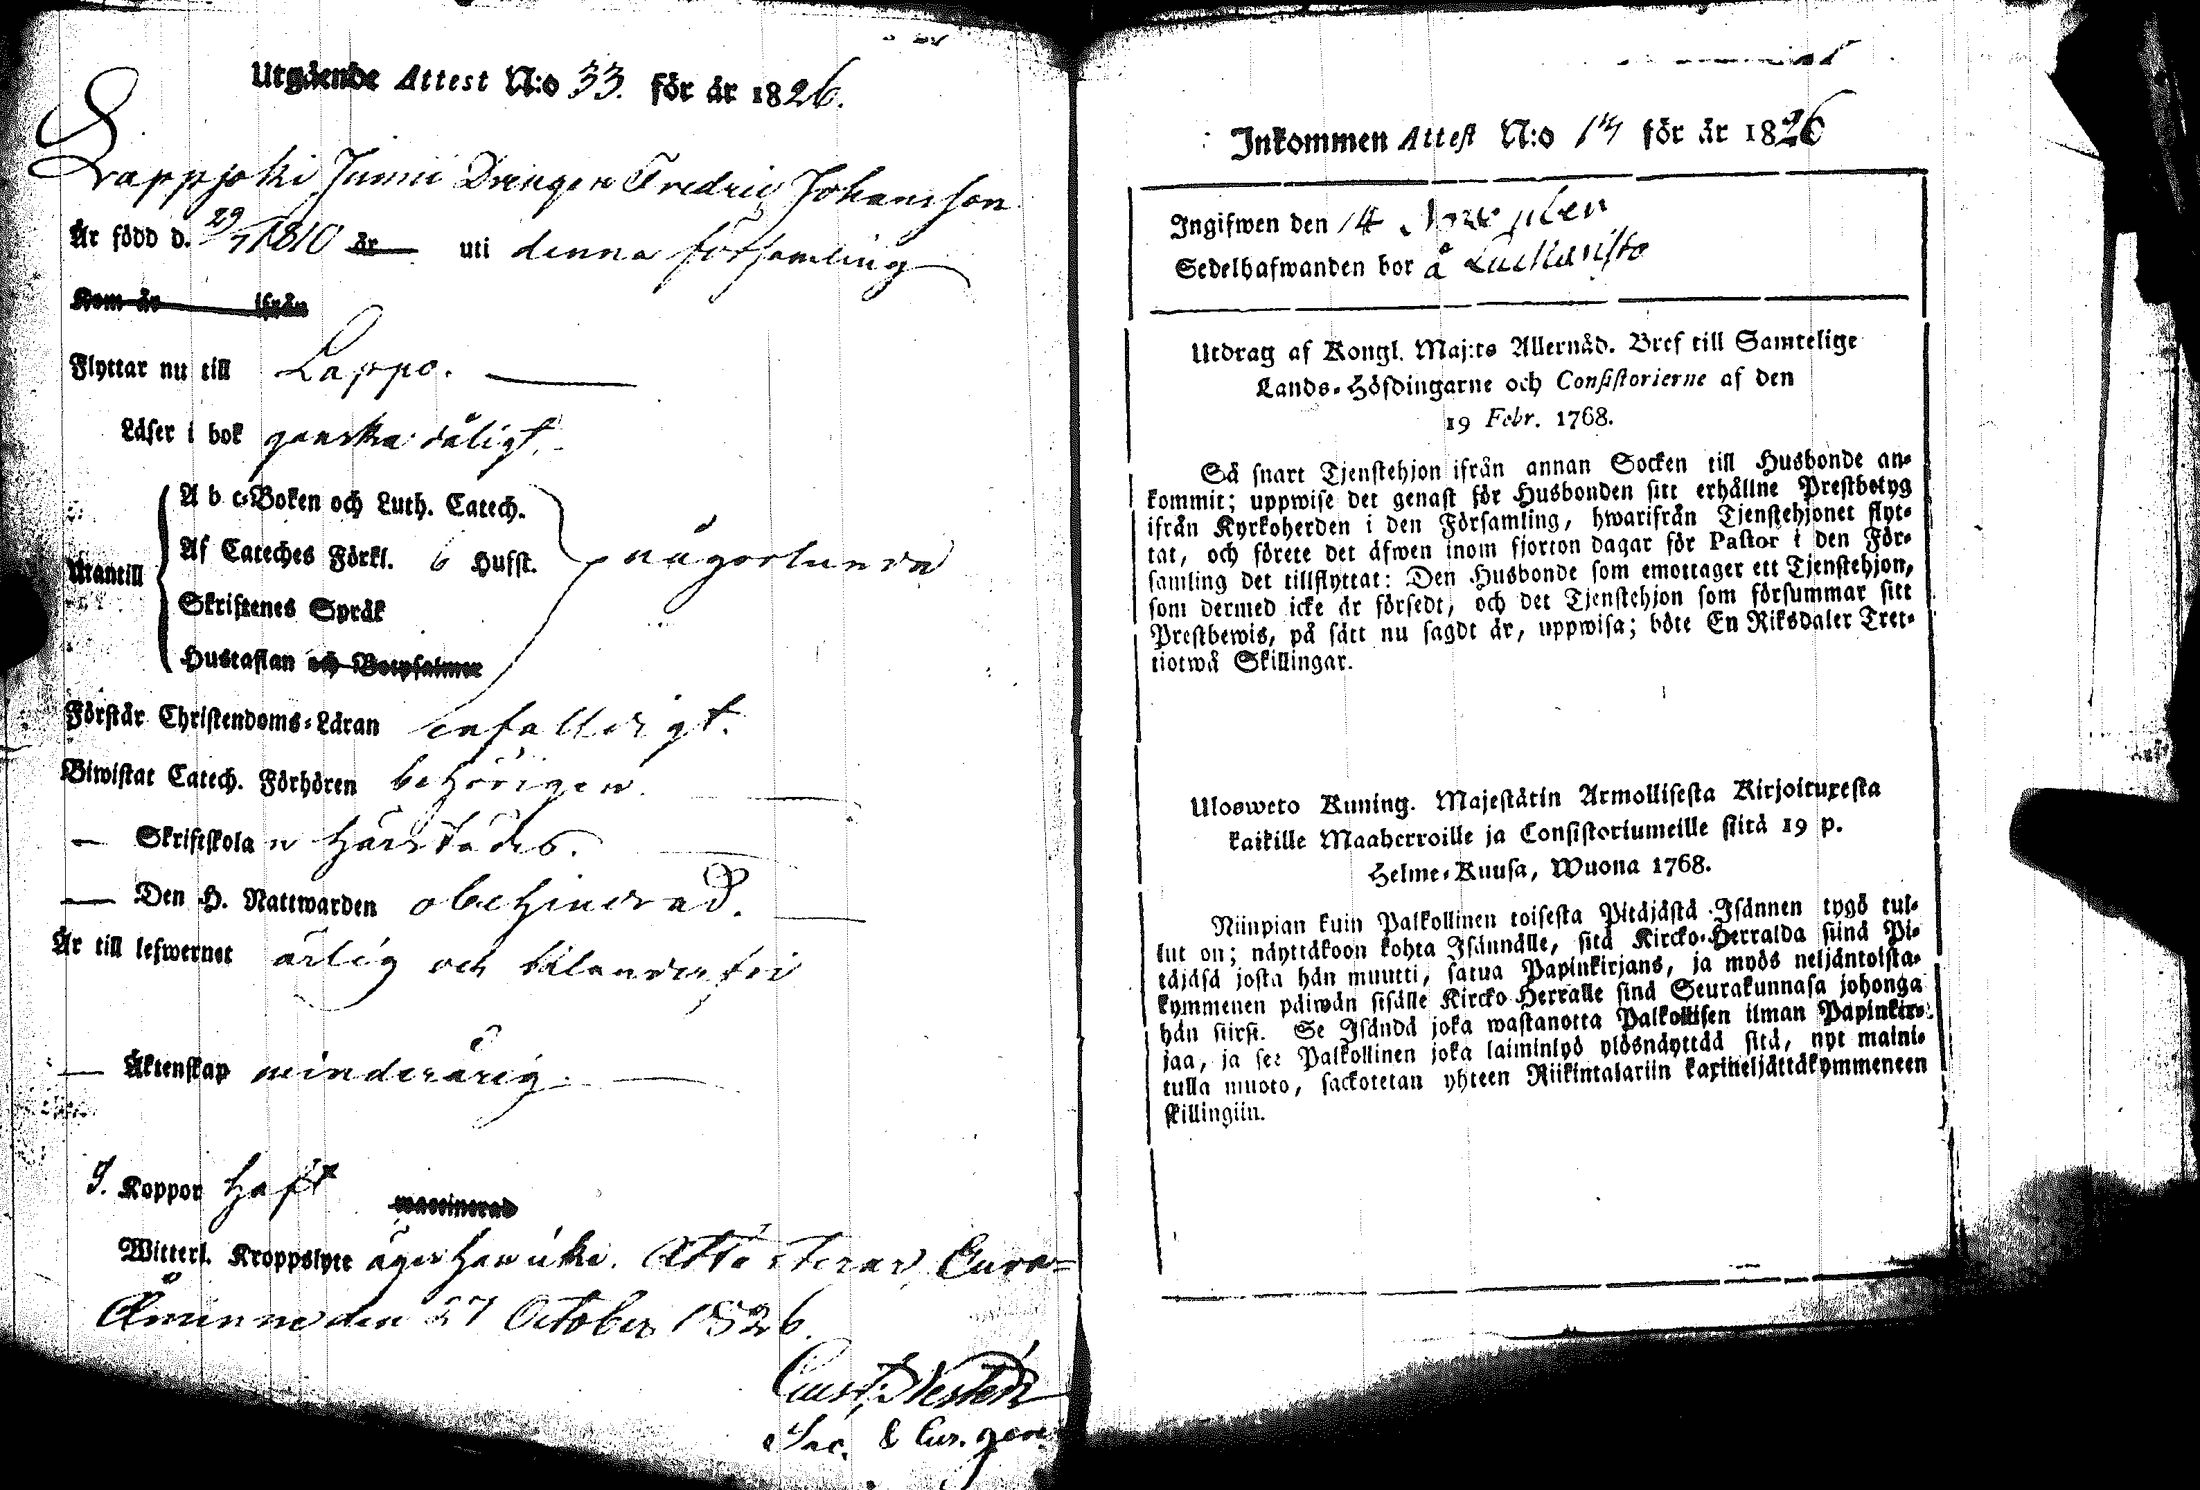 Utgående Attest N:o 33. för år 1826.
Lappjoki Junni Drengen Fredric Johansson
Är född d. 29/7 1810 år uti denna församling
Kom år ifrån
Flyttar nu till Lappo.
Läser i bok ganska dåligt.
Utantill
A b c-Boken och Luth. Catech.
Af Cateches Förkl. 6 Hufst. någorlunda
Skriftenes Språk
Hustaflan och Botpsalmer
Förstår Christendoms-Läran enfalldigt.
Biwistat Catech. Förhören behörigen.
— Skriftskolan härstädes.
— Den H. Nattwarden obehindrad.
Är till lefwernet ärlig och
— Äktenskap minderårig.
Koppor haft waccinerad
Witterl. Kroppslyte äger han icke. Attesterar, Eura-
Åminne den 27 October 1826.
Gust.
Sac. & Cur. gen.
Inkommen Attest N:o för år 1826
Ingifwen den 14 November
Sedelhafwanden bor å
Utdrag af Kongl. Maj:ts Allernåd. Bref till Samtelige
Lands-Höfdingarne och Consistorierne af den
19 Febr. 1768.
Så snart Tjenstehjon ifrån annan Socken till Husbonde an-
kommit; uppwise det genast för Husbonden sitt erhållne Prestbetyg
ifrån Kyrkoherden i den Församling, hwarifrån Tjenstehjonet flyt-
tat, och förete det äfwen inom fjorton dagar för Pastor i den För-
samling det tillflyttat: Den Husbonde som emottager ett Tjenstehjon,
som dermed icke är försedt, och det Tjenstehjon som försummar sitt
Prestbewis, på sätt nu sagdt är, uppwisa; böte En Riksdaler Tret-
tiotwå Skillingar.
Ulosweto Kuning. Majestätin Armollisesta Kirjoituxesta
kaikille Maaherroille ja Consistoriumeille siitä 19 p.
Helme-Kuusa, Wuona 1768.
Niinpian kuin Palkollinen toisesta Pitäjästä Isännen tygö tul-
lut on; näyttäkoon kohta Isännälle, sitä Kircko-Herralda siinä Pi-
täjäsä josta hän muutti, satua Papinkirjans, ja myös neljäntoista-
kymmenen päiwän sisälle Kircko Herralle sinä Seurakunnasa johonga
hän siirsi. Se Isändä joka wastanotta Palkollisen ilman Papinkir-
jaa, ja se Palkollinen joka laiminlyö ylösnäyttää sitä, nyt maini-
tulla muoto, sackotetan yhteen Riikintalariin kaxineljättäkymmeneen
skillingiin.